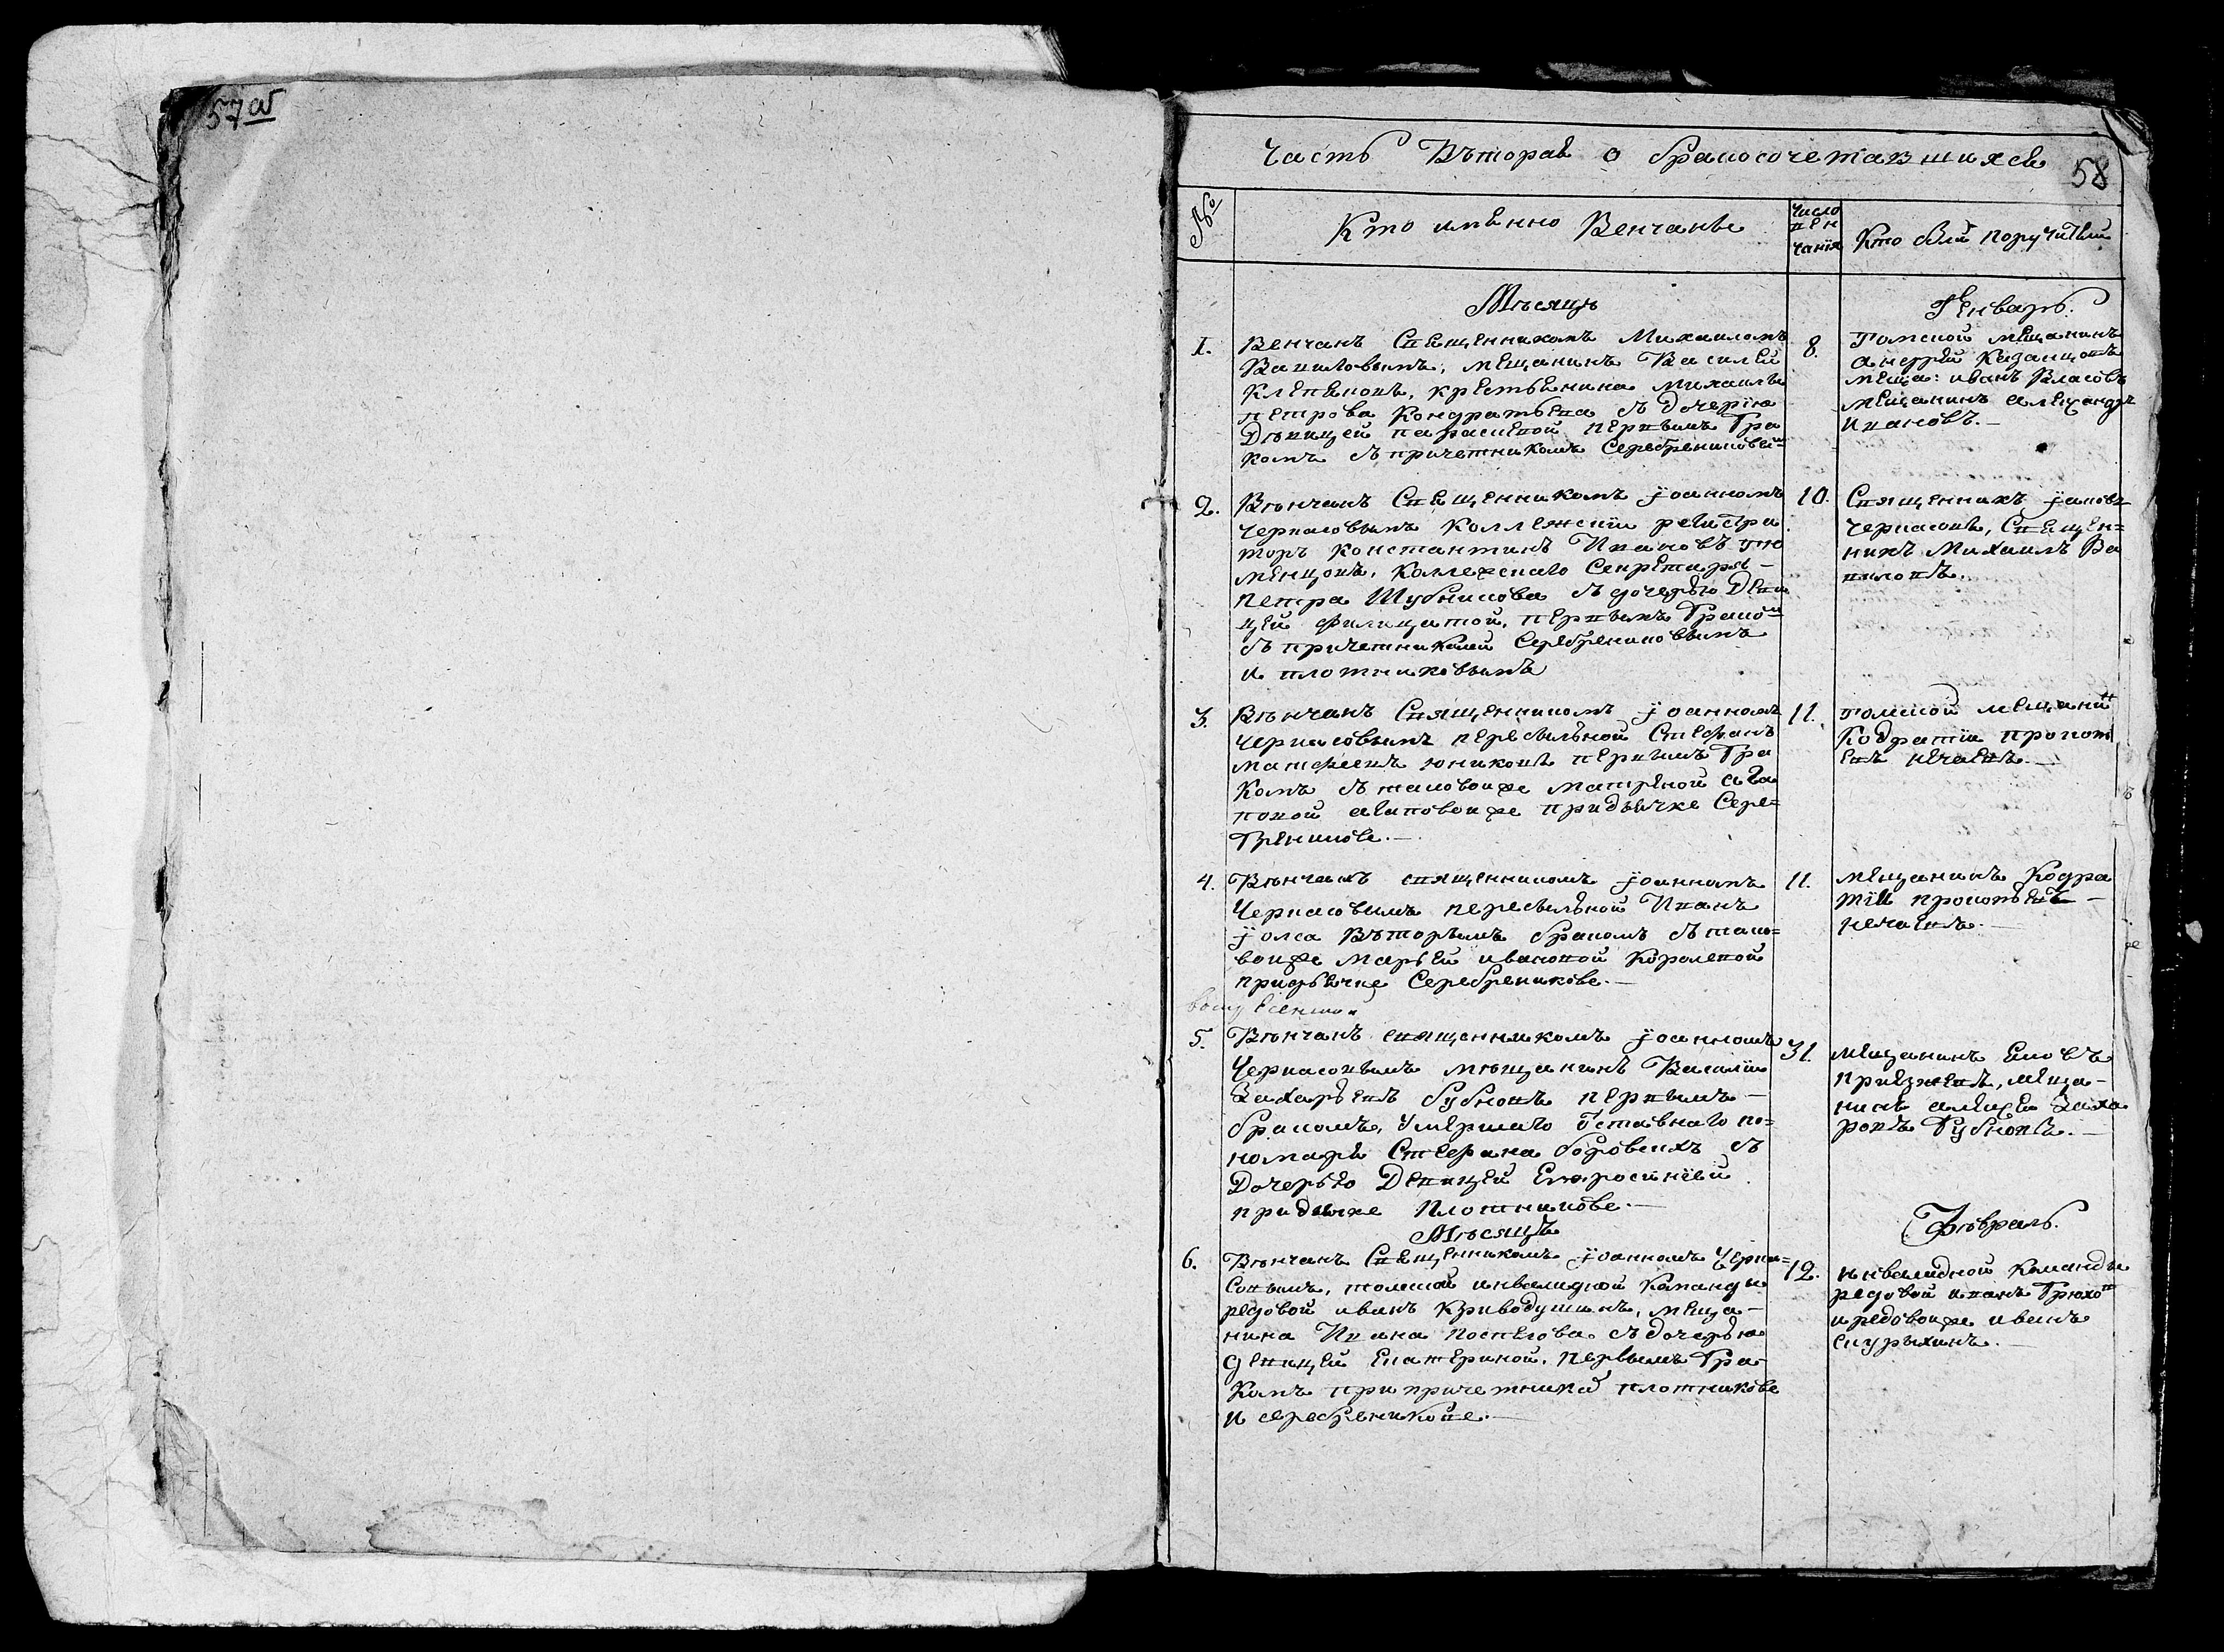 57а
Часть Въторая о бракосочетавшихся
58
№
Кто имѣнно Венчаны
Число
вен
чанія
Кто были поручители
Мѣсяцъ
Генварь.
1.
Венчанъ Священникомъ Михаиломъ
Вавиловымъ, мещанинъ Василей
Клепеновъ, крестьенина Михаилы
петрова Кондратьева съ дочерію
Дѣвицей парасковой первымъ бра
комъ съ причетникомъ Серебрениковы
8.
Томской мещанинъ
андрей Казанцовъ
меща: иванъ Власовъ
мещанинъ александръ
Ивановъ.
2.
Вѣнчанъ Священникомъ іоанномъ
Черкасовымъ Коллежскіи регистра
торъ Константинъ Ивановъ тю
менцовъ, Коллежскаго Секретаря
петра Шубникова съ дочерью Деви
цей филицатой, первымъ бракомъ
съ причетниками Серебрениковымъ
и плотниковымъ
10.
Священникъ
Черкасовъ, Священ=
никъ Михаилъ Ва
виловъ.
3.
Вѣнчанъ Священникомъ іоанномъ
Черкасовымъ пересыльной Стефанъ
Матфеевъ юниковъ первымъ бра
комъ съ таковойже матреной ага
повой агаповойже придьячке Сере=
брениковѣ.
11.
томской мещанинъ
Кодратіи прокопь
евъ нечаевъ.
4.
Вѣнчанъ священникомъ іоанномъ
Черкасовымъ пересыльной Иванъ
іолса Въторымъ бракомъ съ тако=
войже марьей ивановой Королевой
придьячке Серебрениковѣ.
11.
мещанинъ Кодра
тіи прокопьевъ
нечаевъ.
5.
Вѣнчанъ священникомъ іоанномъ
Черкасовымъ мѣщанинъ Василіи
Захарьевъ бубновъ первымъ
бракомъ, умершаго Заставнаго по=
номаря Стефана боровскихъ съ
Дочерью Девицей Ефросиніей
придьячке Плотниковѣ.
31.
мещанинъ
приезжевъ, меща
нинъ алексей Заха
ровъ бубновъ.
Мѣсяцъ
Февраль.
6.
Вѣнчанъ Священникомъ іоанномъ Черка=
совымъ, томской инвалидной Каманды
редовой иванъ Криводушинъ, меща
нина Ивана поспелова съ дочерью
девицей Екатериной, первымъ бра
комъ при причетникаѣ плотникове
и серебреникове.
12.
инвалидной Команды
редовой иванъ
и редовойже иванъ
скурыхинъ.